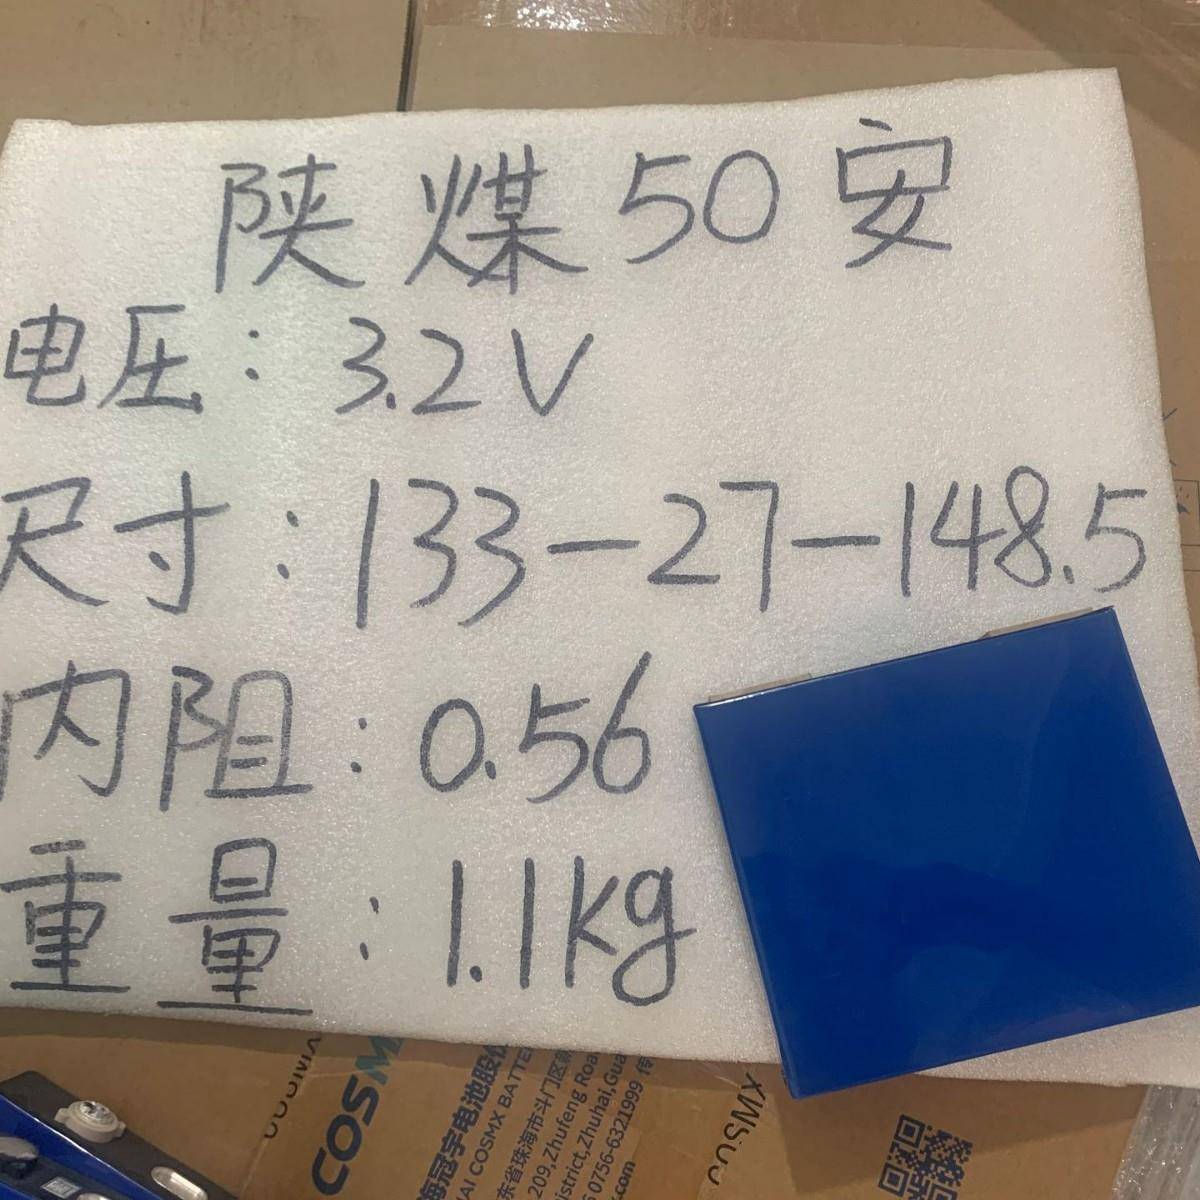 陕煤50安
电压:3.2V
尺寸:133-27-148.5
内阻:0.56
重量:1.1kg
COSMX
COSM
海冠宇电池股份
AI COSMX BATTE
东省珠海市斗门区
209,Zhufeng Roa
istrict,Zhuhai,Gua
0756-6321999
x.com